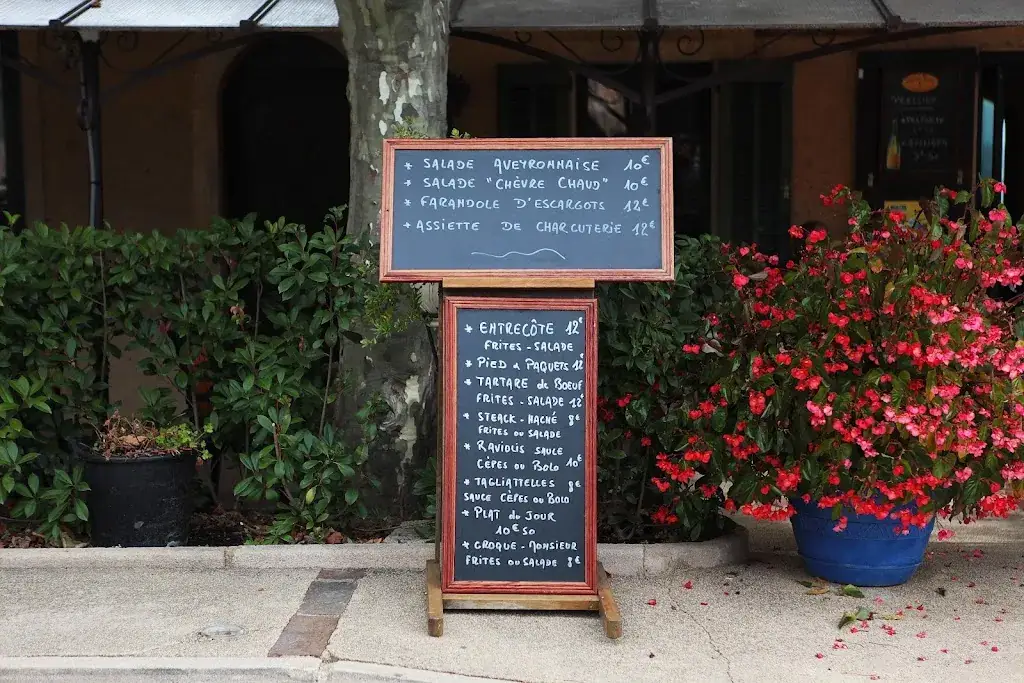 * SALADE AVEYRONNAISE 10€
* SALADE "CHÈVRE CHAUD" 10€
* FARANDOLE D'ESCARGOTS 12€
* ASSIETTE DE CHARCUTERIE 12€
* ENTRECÔTE 12€
FRITES - SALADE
* PIED & PAQUETS 12€
* TARTARE de BŒUF
FRITES - SALADE 12€
* STEACK - HACHÉ 8€
FRITES OU SALADE
* RAVIOLIS SAUCE
CÈPES OU BOLO 10€
* TAGLIATTELLES 8€
SAUCE CÈPES OU BOLO
* PLAT du JOUR
10€50
* CROQUE - MONSIEUR
FRITES OU SALADE 8€